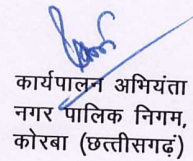 कार्यपालन अभियंता
नगर पालिक निगम,
कोरबा (छत्तीसगढ़ं)